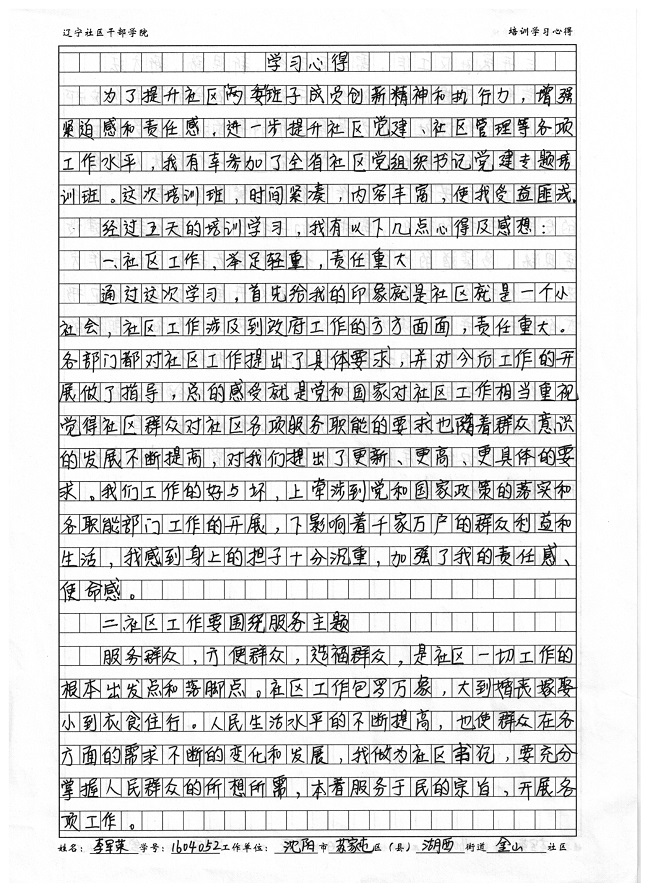 辽宁社区干部学院 培训学习心得
学习心得
为了提升社区两委班子成员创新精神和执行力，增强
紧迫感和责任感，进一步提升社区党建、社区管理等各项
工作水平，我有幸参加了全省社区党组织书记党建专题培
训班。这次培训班，时间紧凑，内容丰富，使我受益匪浅。
经过五天的培训学习，我有以下几点心得及感想：
一、社区工作，举足轻重，责任重大
通过这次学习，首先给我的印象就是社区就是一个小
社会，社区工作涉及到政府工作的方方面面，责任重大。
各部门都对社区工作提出了具体要求，并对今后工作的开
展做了指导，总的感受就是党和国家对社区工作相当重视
觉得社区群众对社区各项服务职能的要求也随着群众意识
的发展不断提高，对我们提出了更新、更高、更具体的要
求。我们工作的好与坏，上牵涉到党和国家政策的落实和
各职能部门工作的开展，下影响着千家万户的群众利益和
生活，我感到身上的担子十分沉重，加强了我的责任感、
使命感。
二、社区工作要围绕服务主题
服务群众，方便群众，造福群众，是社区一切工作的
根本出发点和落脚点。社区工作包罗万象，大到婚丧嫁娶
小到衣食住行。人民生活水平的不断提高，也使群众在各
方面的需求不断的变化和发展，我做为社区书记，要充分
掌握人民群众的所想所需，本着服务于民的宗旨，开展各
项工作。
姓名：李军荣 学号：1604052 工作单位：沈阳市 苏家屯区（县） 湖西 街道 金山 社区